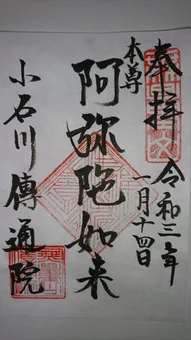 奉拝
令和三年
一月十四日
本尊
阿弥陀如来
小石川傳通院